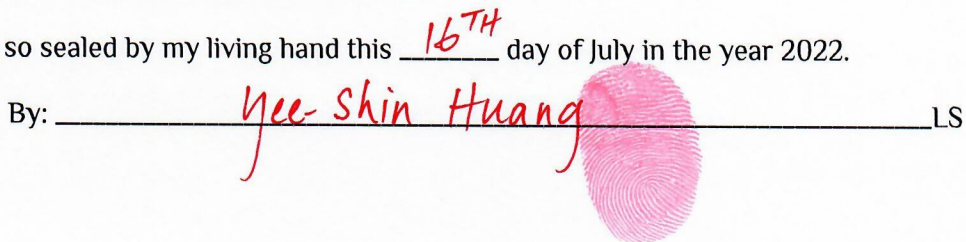 so sealed by my living hand this 16TH day of July in the year 2022.
By: Yee-Shin Huang LS